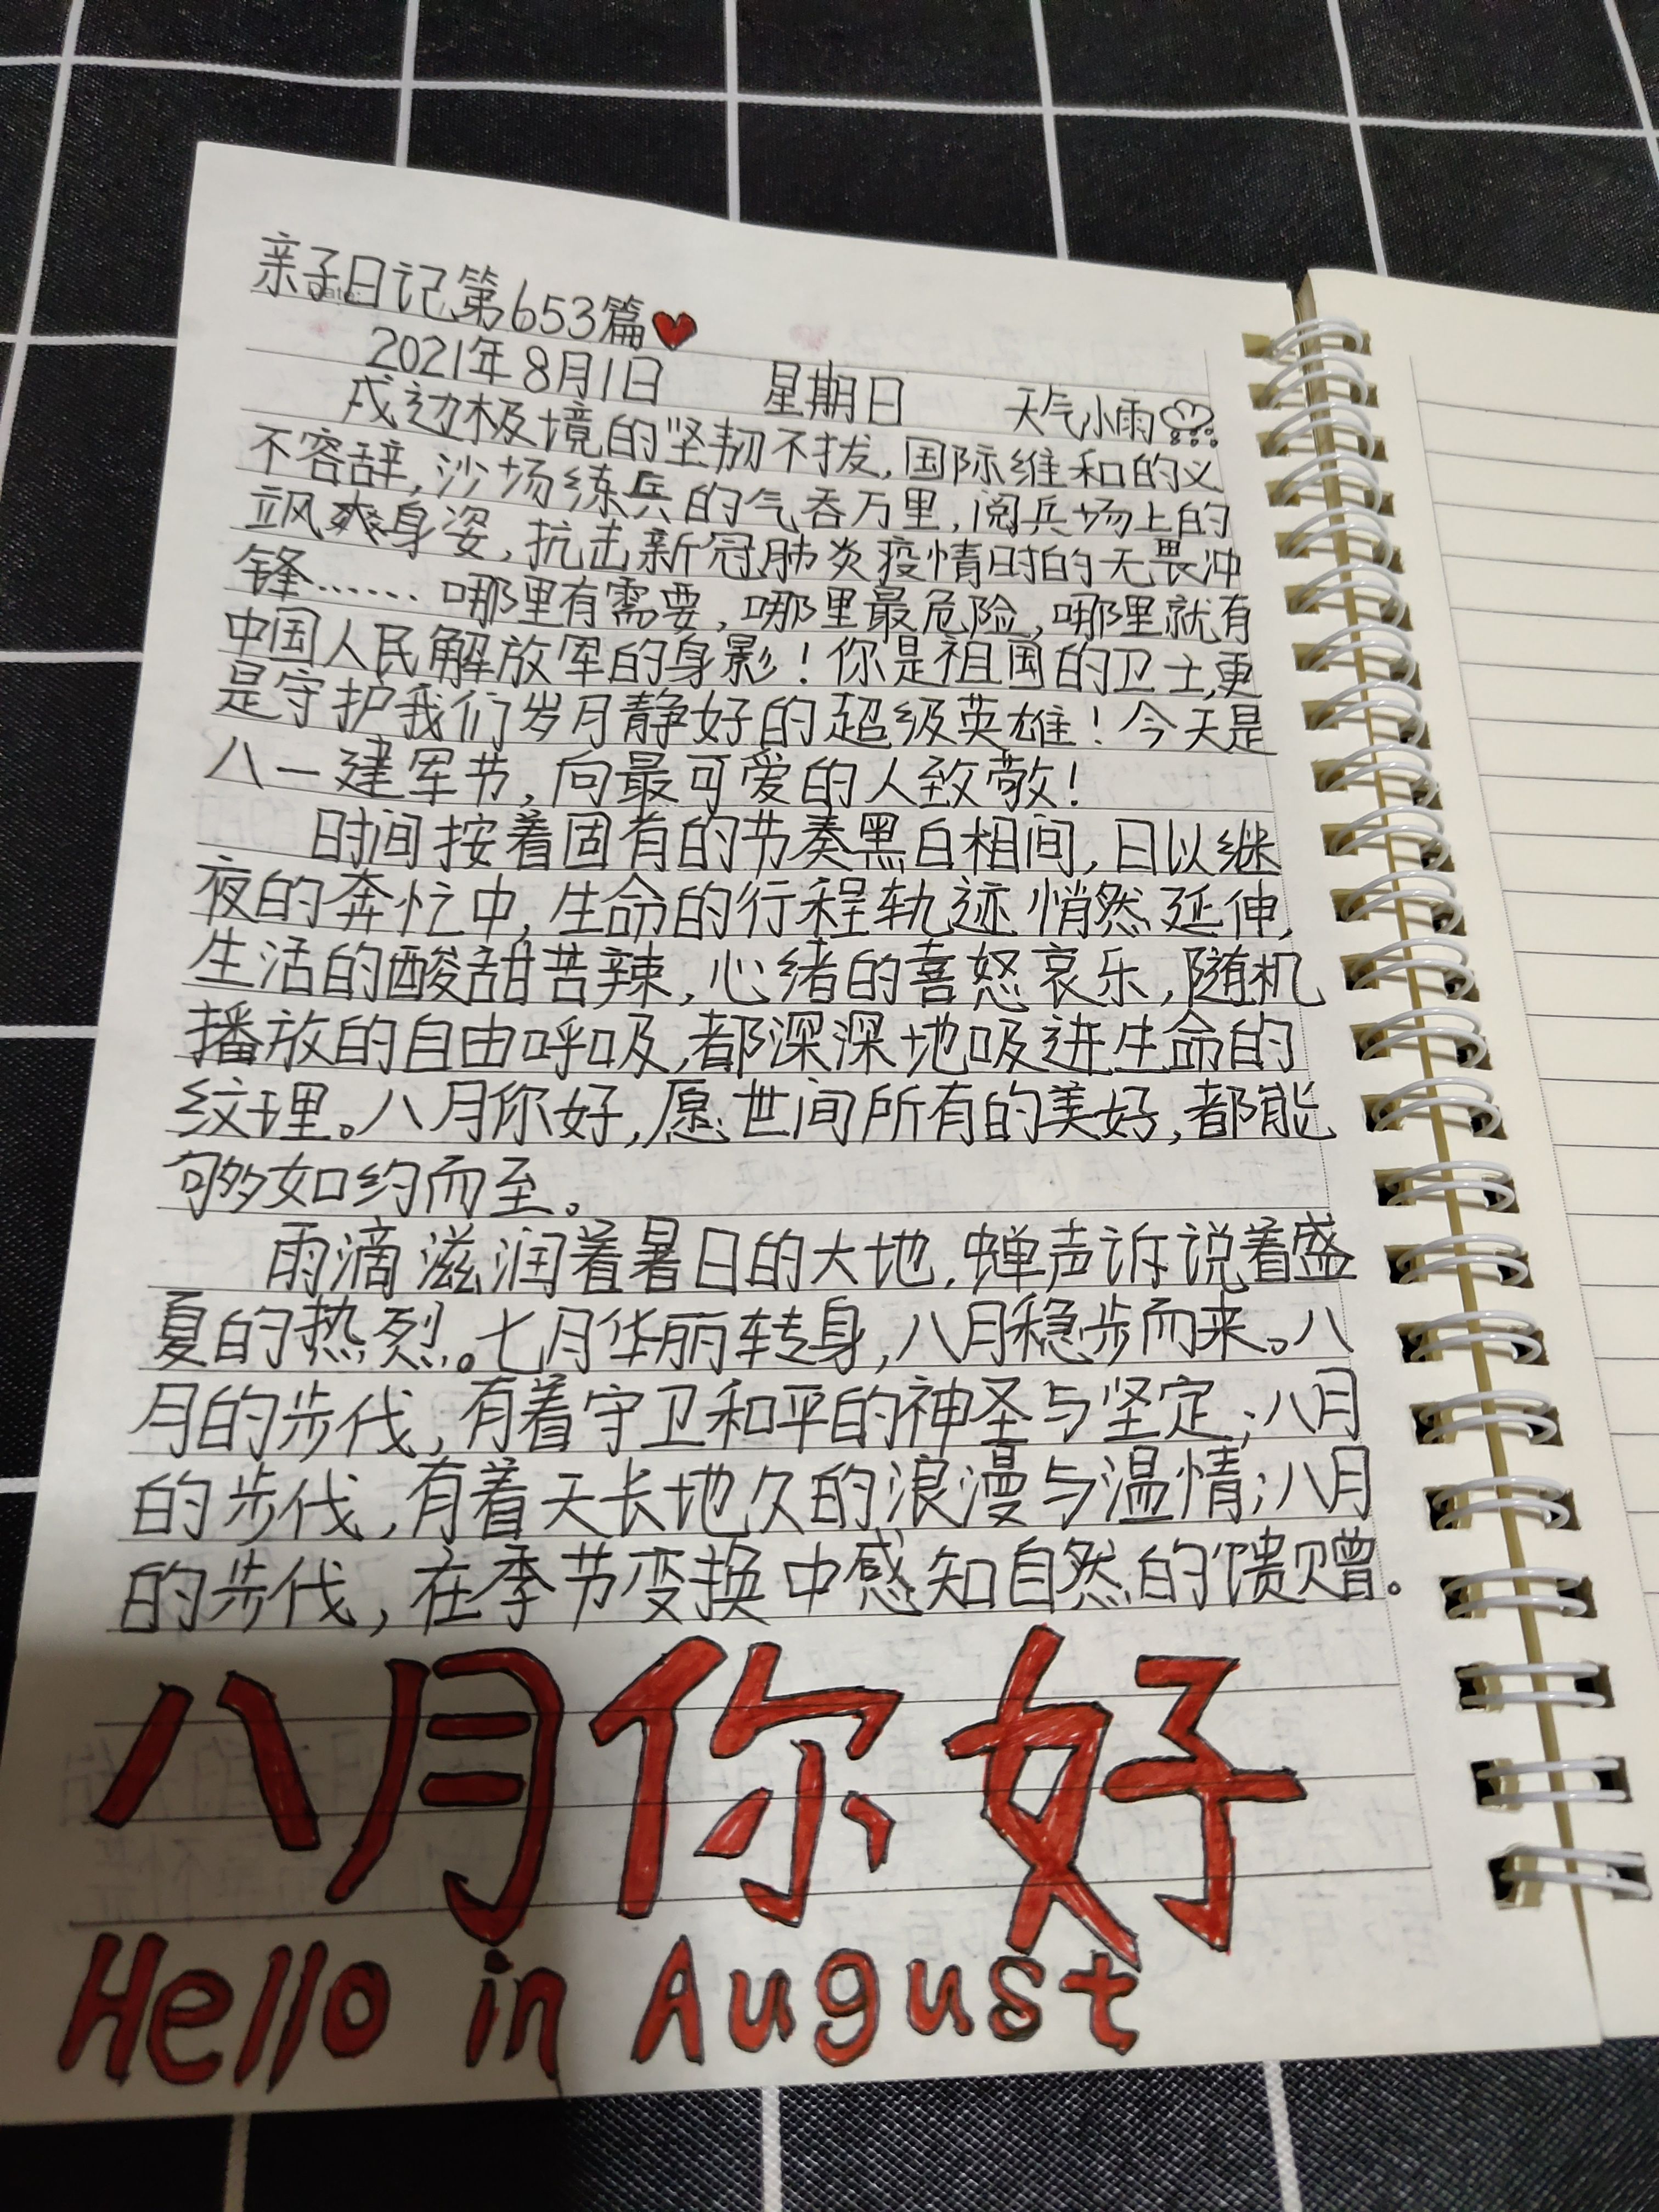 亲子日记第653篇
2021年8月1日 星期日 天气小雨
戍边极境的坚韧不拔,国际维和的义
不容辞,沙场练兵的气吞万里,阅兵场上的
飒爽身姿,抗击新冠肺炎疫情时的无畏冲
锋……哪里有需要,哪里最危险,哪里就有
中国人民解放军的身影!你是祖国的卫士,更
是守护我们岁月静好的超级英雄!今天是
八一建军节,向最可爱的人致敬!
时间按着固有的节奏黑白相间,日以继
夜的奔忙中,生命的行程轨迹悄然延伸,
生活的酸甜苦辣,心绪的喜怒哀乐,随机
播放的自由呼吸,都深深地吸进生命的
纹理。八月你好,愿世间所有的美好,都能
够如约而至。
雨滴滋润着暑日的大地,蝉声诉说着盛
夏的热烈。七月华丽转身,八月稳步而来。八
月的步伐,有着守卫和平的神圣与坚定;八月
的步伐,有着天长地久的浪漫与温情;八月
的步伐,在季节变换中感知自然的馈赠。
八月你好
Hello in August